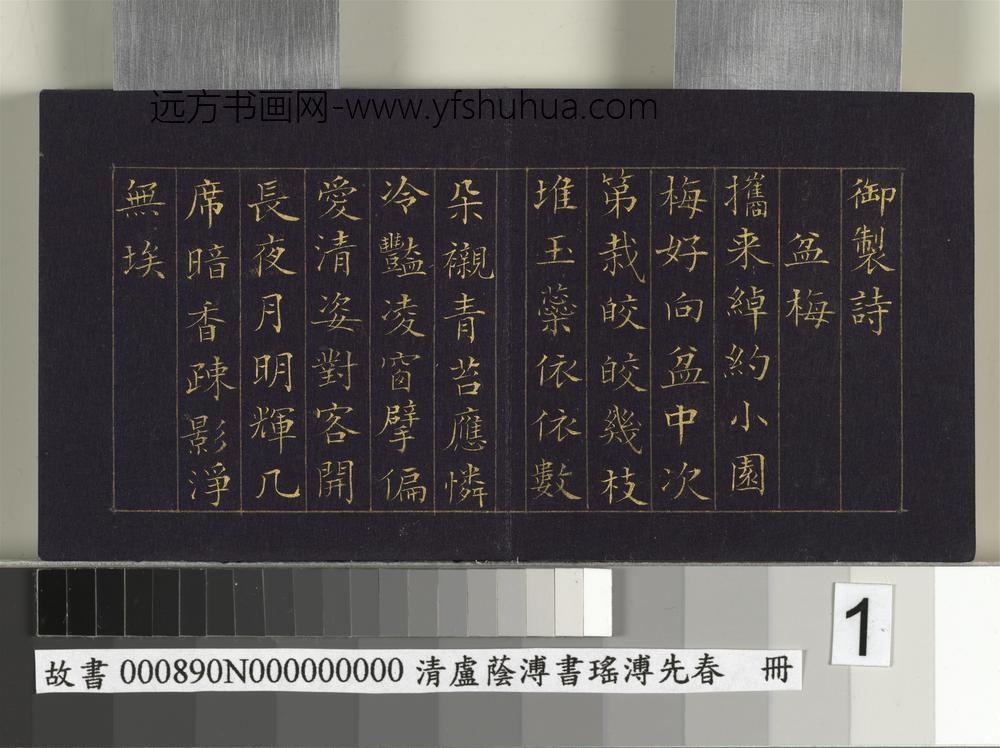 远方书画网-www.yfshuhua.com
御製詩
盆梅
攜来綽約小園
梅好向盆中次
第栽皎皎幾枝
堆玉蘂依依數
朶襯青苔應憐
冷豔凌窗擘偏
愛清姿對客開
長夜月明輝几
席暗香疎影淨
無埃
1
故書000890N000000000清盧蔭溥書瑤溥先春 冊